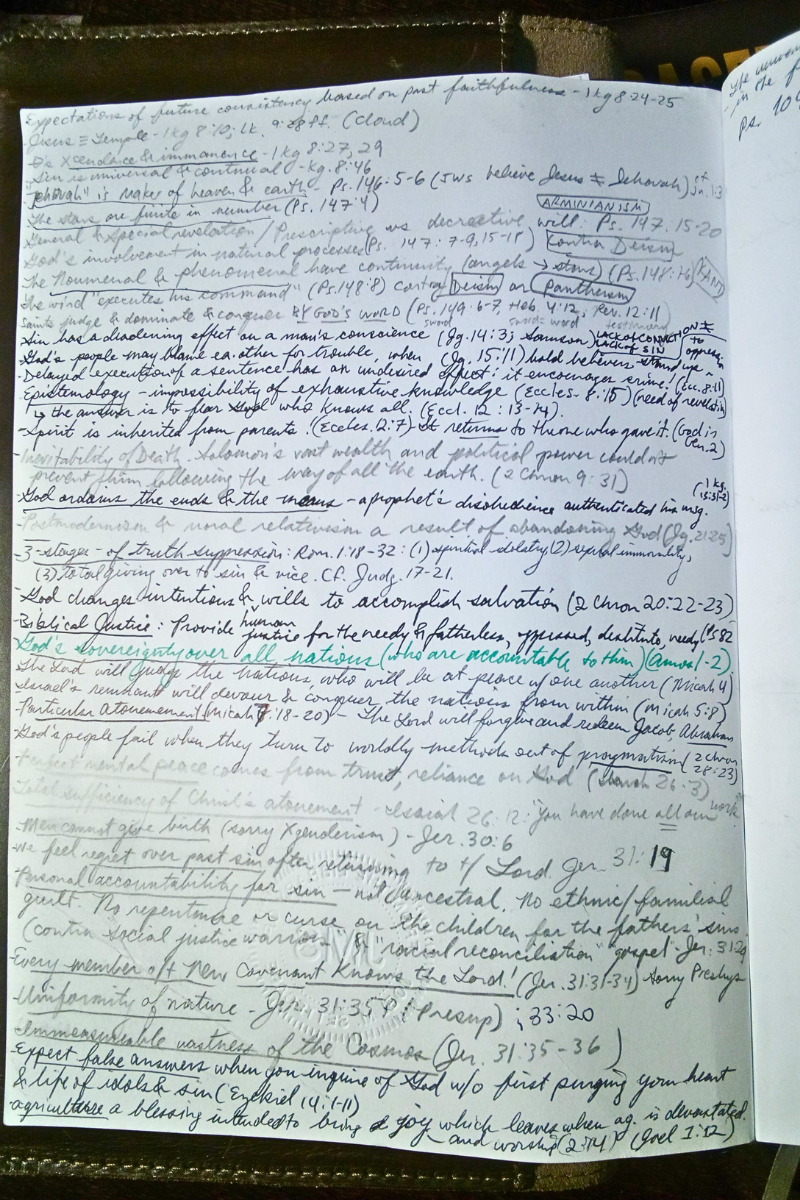 Expectations of future consistency based on past faithfulness - 1 Kg 8:24-25
- Jesus ≡ Temple - 1 Kg 8:10; Lk. 9: ff. (cloud)
Xcendance & immanence - 1 Kg 8:27, 29
Sin is universal & continual - Kg. 8:46
"Jehovah" is maker of heaven & earth - Ps. 146:5-6 (JWs believe Jesus ≠ Jehovah) cf Jn. 1:3
The stars are finite in number (Ps. 147:4)
ARMINIANISM
General & Special revelation / Prescriptive vs decretive will: Ps. 147:15-20
God's involvement in natural processes (Ps. 147:7-9, 15-18) Contra Deism
The Noumenal & phenomenal have continuity (angels → stars) (Ps. 148:) (KANT)
The wind "executes his command" (Ps. 148:8) contra Deism or Pantheism
Saints judge & dominate & conquer BY GOD'S WORD (Ps. 149:6-7, Heb 4:12, Rev. 12:11)
sword sword = word testimony
Sin has a deadening effect on a man's conscience (Jg. 14:3; Samson) LACK OF CONVICTION ≠ LACK OF SIN
- God's people may blame ea. other for trouble, when (Jg. 15:11) bold believers stand up to oppression
- Delayed execution of a sentence has an undesired effect: it encourages crime! (Ecc. 8:11)
- Epistemology - impossibility of exhaustive knowledge (Eccles. 8:15) (need of revelation)
↳ the answer is to fear who knows all. (Eccl. 12:13-14).
- Spirit is inherited from parents. (Eccles. 2:7) It returns to the one who gave it. (God in Gen. 2)
- Inevitability of Death. Solomon's vast wealth and political power couldn't
prevent him following the way of all the earth. (2 Chron 9:31)
- God ordains the ends & the means - a prophet's disobedience authenticated his msg. (1 Kg.
- Postmodernism & moral relativism a result of abandoning God (Jg. 21:25)
- 3-stages - of truth suppression: Rom. 1:18-32: (1) spiritual idolatry (2) sexual immorality,
(3) total giving over to sin & vice. Cf. Judg. 17-21.
- God changes intentions & wills to accomplish salvation (2 Chron 20:22-23)
- Biblical Justice: Provide human justice for the needy & fatherless, oppressed, destitute, needy (Ps 82
God's sovereignty over all nations (who are accountable to him) (Amos 1-2).
The Lord will judge the nations, who will be at peace w/ one another (Micah 4)
- Israel's remnant will devour & conquer the nations from within (Micah 5:8)
- Particular Atonement (Micah 7:18-20) - The Lord will forgive and redeem Jacob Abraham
- God's people fail when they turn to worldly methods out of pragmatism (2 Chron 28:23)
- Perfect mental peace comes from trust, reliance on God (Isaiah 26:3)
- Total sufficiency of Christ's atonement - Isaiah 26:12: You have done all our work
- Men cannot give birth (sorry Xgenderism) - Jer. 30:6
- We feel regret over past sin after returning to t/ Lord. Jer. 31:19
- Personal accountability for sin - not ancestral. No ethnic/familial
guilt. No repentance or curse on the children for the fathers' sins
(contra social justice warrior & "racial reconciliation" "gospel" - Jer. 31:29
- Every member o/t New Covenant knows the Lord! (Jer. 31:31-34) Sorry Presbys
- Uniformity of nature - Jer. 31:35 (Presup); 33:20
- Immeasurable vastness of the Cosmos (Jer. 31:35-36)
- Expect false answers when you inquire of God w/o first purging your heart
& life of idols & sin (Ezekiel 14:1-11)
- agriculture a blessing intended to bring joy which leaves when ag. is devastated.
and worship (2:14) (Joel 1:12)
in the
Ps. 104